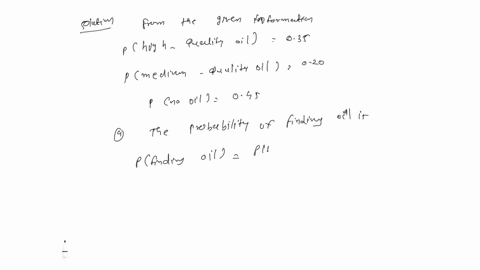 Solution From the given information
P(high-Quality oil) = 0.35
P(medium-Quality oil) = 0.20
P(no oil) = 0.45
ⓐ The probability of finding oil is
P(finding oil) = P(